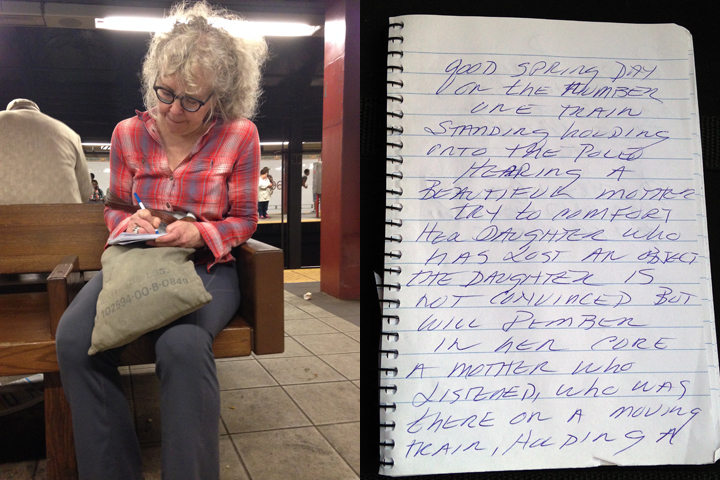 102594-00-B-0846
good SPRING DAY
ON the NUMBER
ONE TRAIN
STANDING holding
ONTO THE POLE
HEARING A
BEAUTIFUL MOTHER
TRY TO COMFORT
HER DAUGHTER WHO
HAS LOST AN OBJECT
THE DAUGHTER IS
NOT CONVINCED BUT
WILL REMBER
IN HER CORE
A MOTHER WHO
LISTENED, WHO WAS
there ON A MOVING
TRAIN, HOLDING A